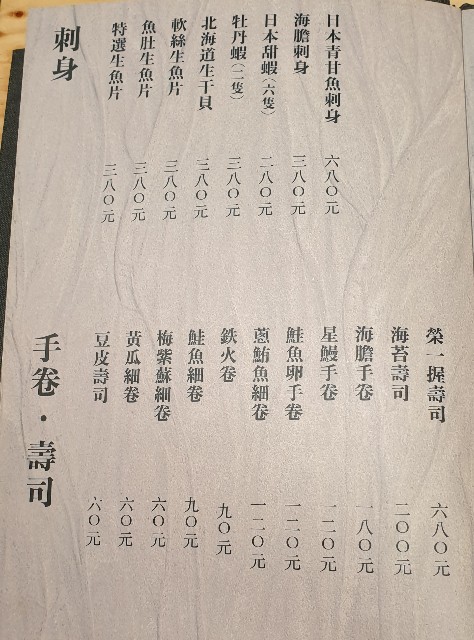 刺身
特選生魚片 三八〇元
魚肚生魚片 三八〇元
軟絲生魚片 三八〇元
北海道生干貝 三八〇元
牡丹蝦(二隻) 三八〇元
日本甜蝦(六隻) 二八〇元
海膽刺身 三八〇元
日本青甘魚刺身 六八〇元
手卷・壽司
豆皮壽司 六〇元
黃瓜細卷 六〇元
梅紫蘇細卷 六〇元
鮭魚細卷 九〇元
鉄火卷 九〇元
蔥鮪魚細卷 一二〇元
鮭魚卵手卷 一二〇元
星鰻手卷 一二〇元
海膽手卷 一八〇元
海苔壽司 二〇〇元
榮一握壽司 六八〇元